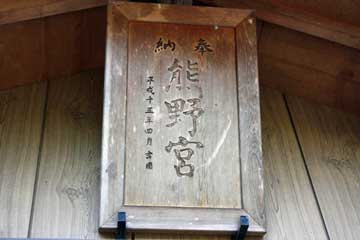 奉納
熊野宮
平成十五年四月吉日